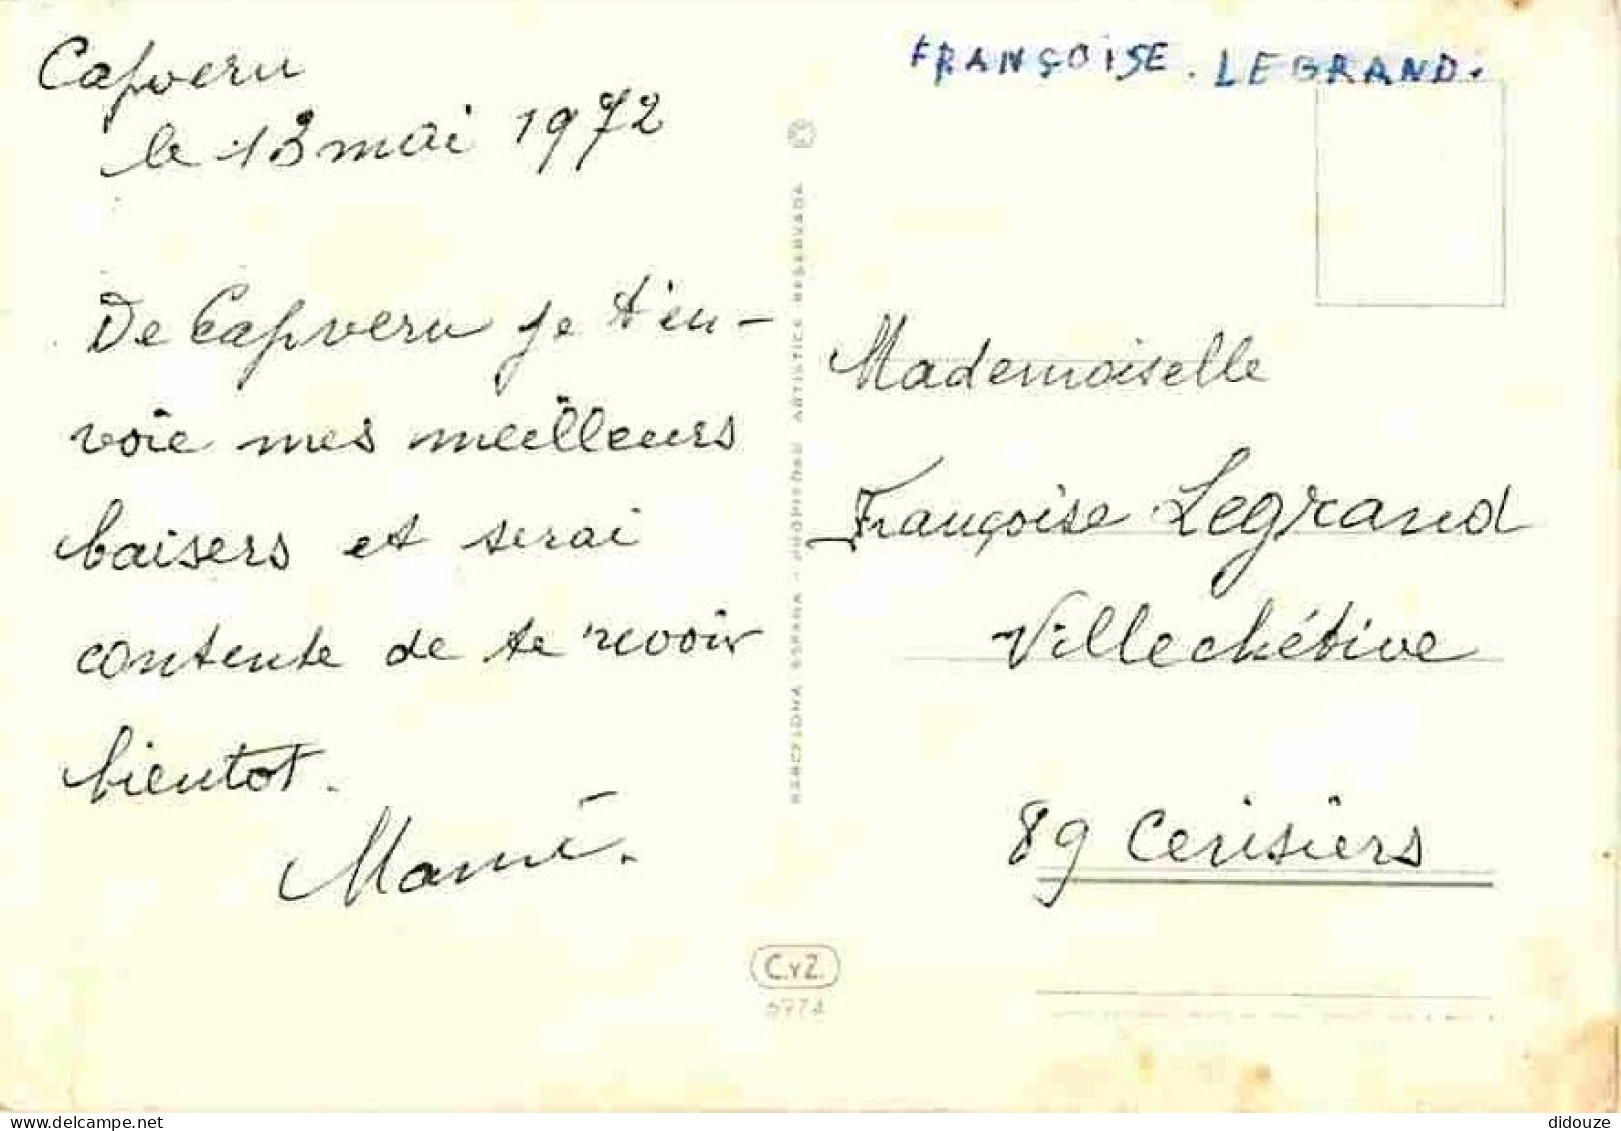 Capvern
le 13 mai 1972
De Capvern je t'en-
voie mes meilleurs
baisers et serai
contente de te revoir
bientot.
Mamé.
FRANÇOISE. LEGRAND.
Mademoiselle
Françoise Legrand
Villechétive
89 Cerisiers
BARCELONA ESPAÑA - PROPIEDAD ARTISTICA RESERVADA
C.Y.Z.
didouze